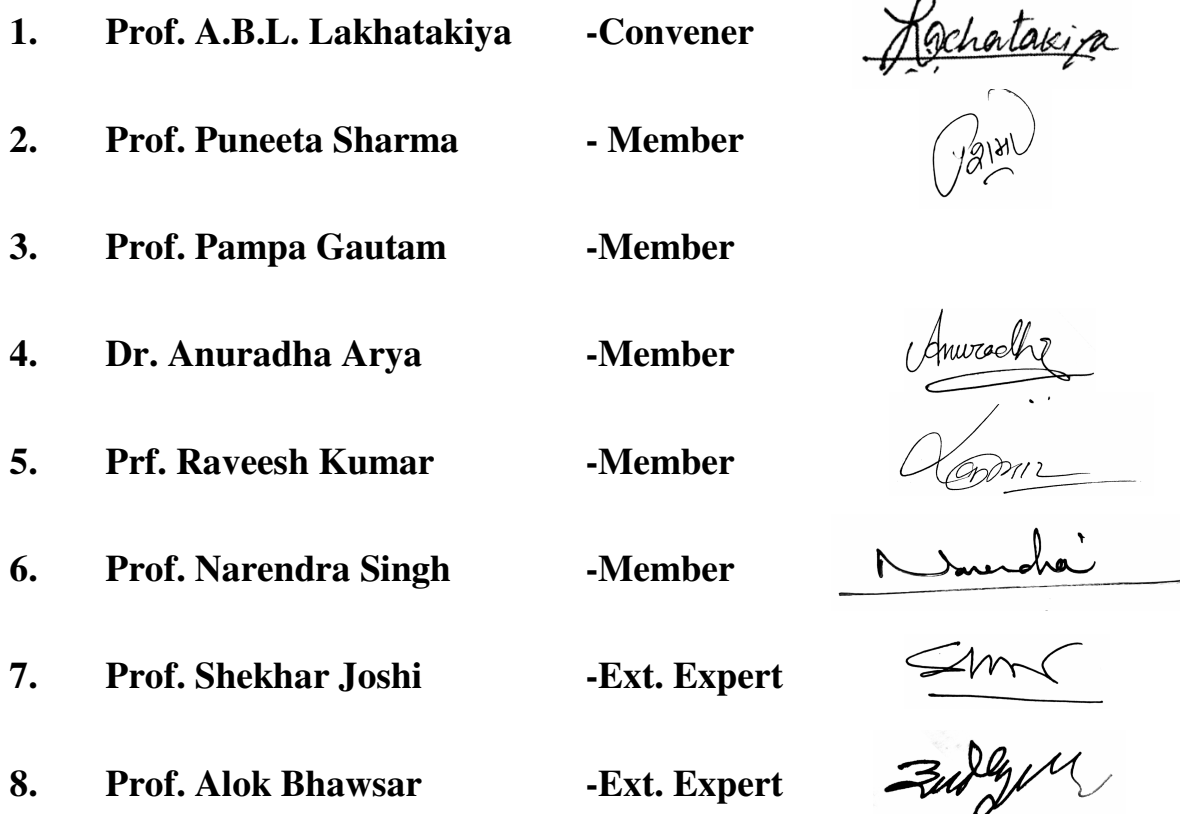 1. Prof. A.B.L. Lakhatakiya -Convener Lachatakiya
2. Prof. Puneeta Sharma - Member
3. Prof. Pampa Gautam -Member
4. Dr. Anuradha Arya -Member Anuradha
5. Prf. Raveesh Kumar -Member
6. Prof. Narendra Singh -Member Narendra
7. Prof. Shekhar Joshi -Ext. Expert
8. Prof. Alok Bhawsar -Ext. Expert